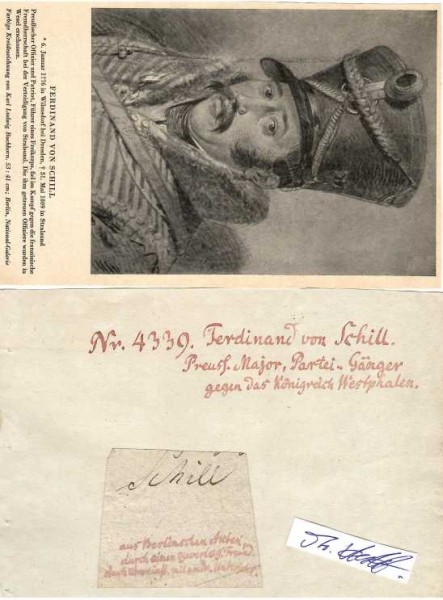 FERDINAND VON SCHILL
* 6. Januar 1776 in Wilmsdorf bei Dresden, † 31. Mai 1809 in Stralsund
Preußischer Offizier und Patriot, Führer eines Freikorps, fiel im Kampf gegen die französische
Fremdherrschaft bei der Verteidigung von Stralsund. Die ihm getreuen Offiziere wurden in
Wesel erschossen.
Farbige Kreidezeichnung von Karl Ludwig Buchhorn, 53 : 41 cm; Berlin, National-Galerie
Nr. 4339. Ferdinand von Schill.
Preuss. Major, Partei-Gänger
gegen das Königreich Westphalen.
Schill
aus Berlinschen
durch einen zuverläss. Freund